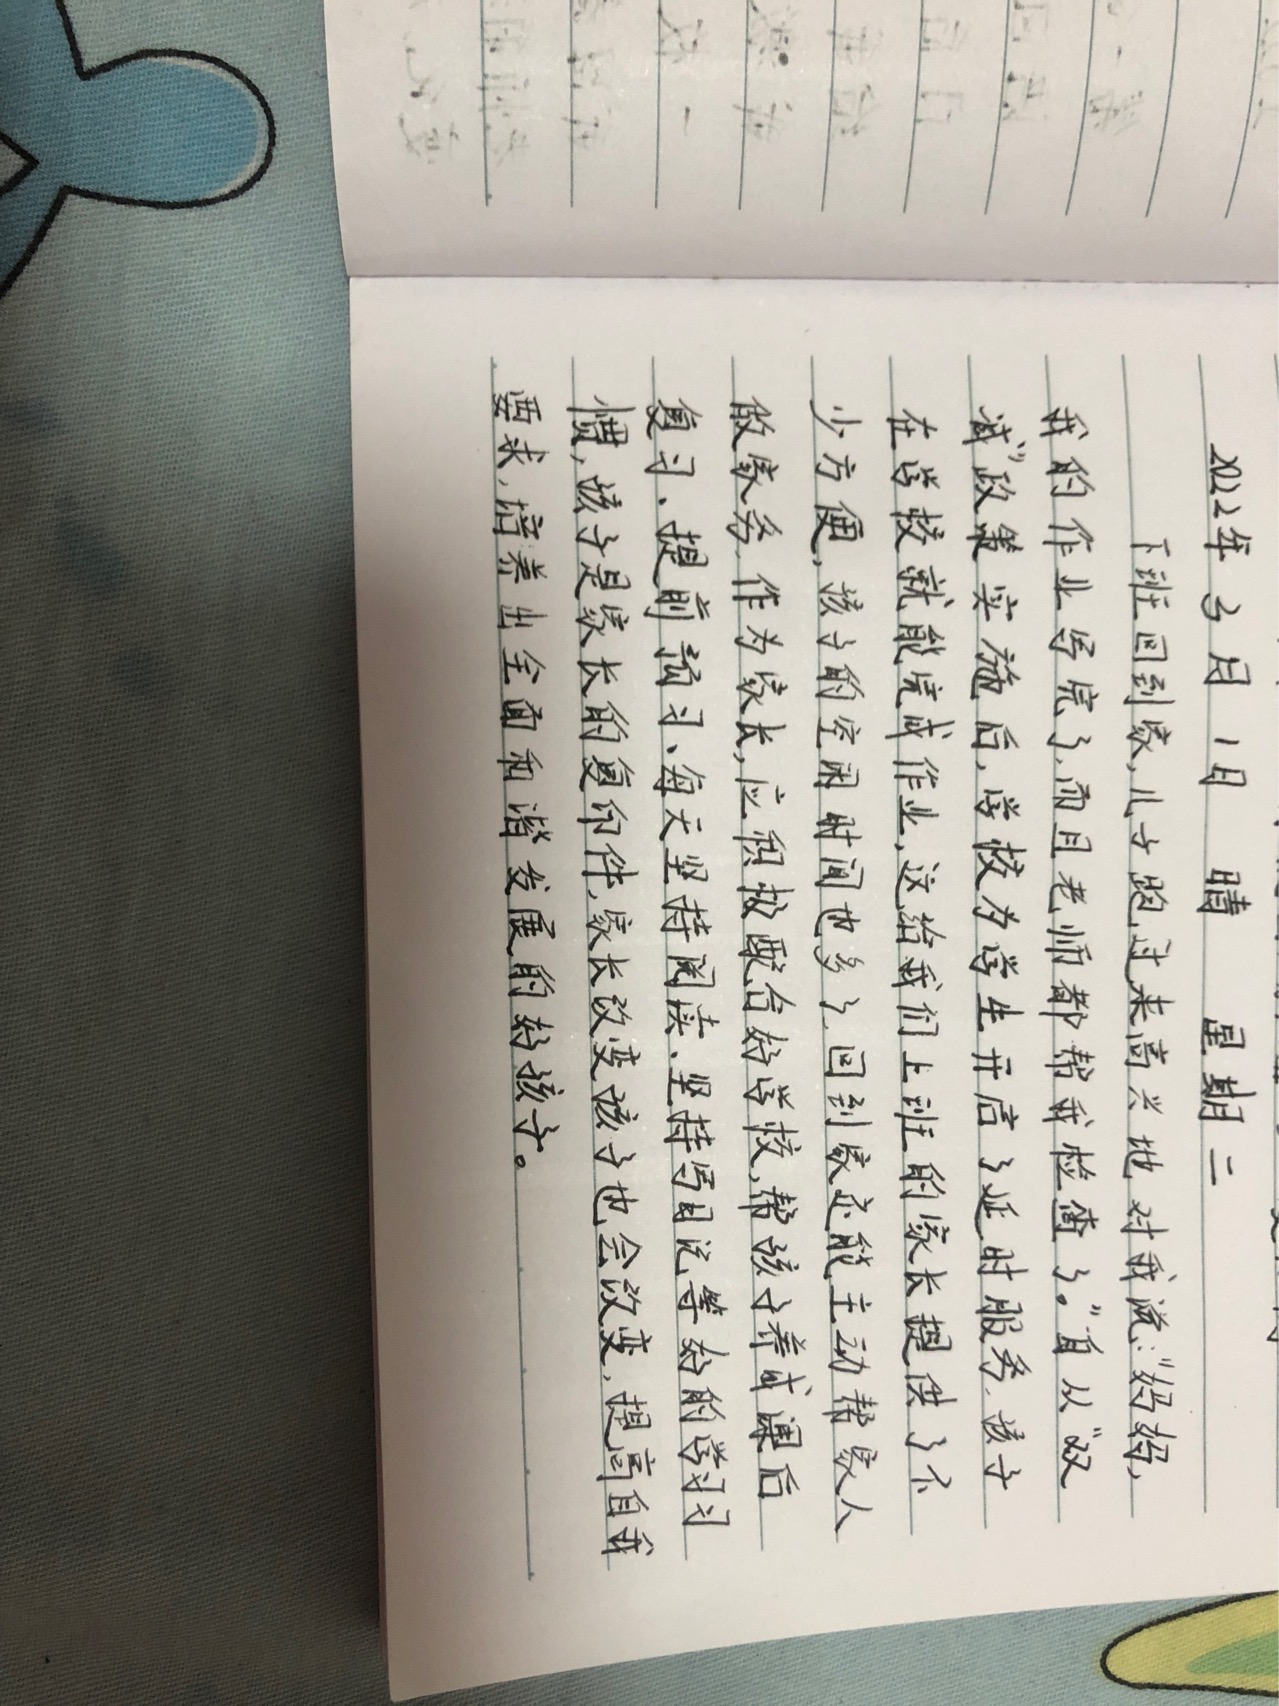 2022年3月1日 晴 星期二
下班回到家，儿子跑过来高兴地对我说："妈妈，
我的作业写完了，而且老师都帮我检查了。"自从"双
减"政策实施后，学校为学生开启了延时服务，孩子
在学校就能完成作业，这给我们上班的家长提供了不
少方便，孩子的空闲时间也多了，回到家还能主动帮家人
做家务，作为家长，应积极配合好学校，帮孩子养成课后
复习、提前预习、每天坚持阅读、坚持写日记等好的学习习
惯，孩子是家长的复印件，家长改变孩子也会改变，提高自我
要求，培养出全面和谐发展的好孩子。